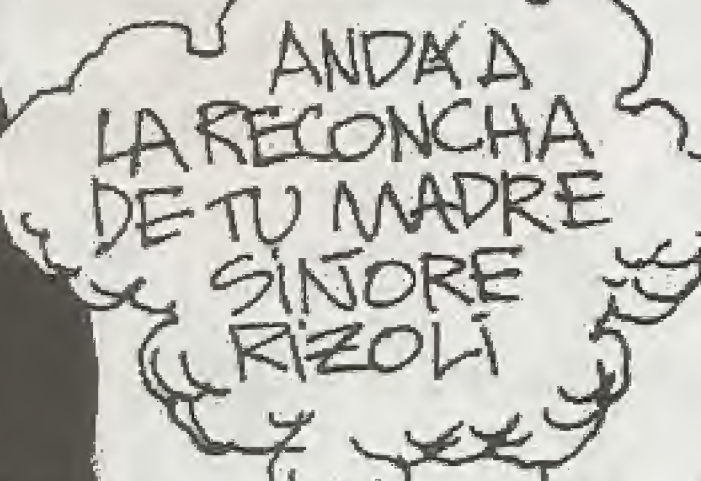 ANDÁ A
LA RECONCHA
DE TU MADRE
SIÑORE
RIZOLI